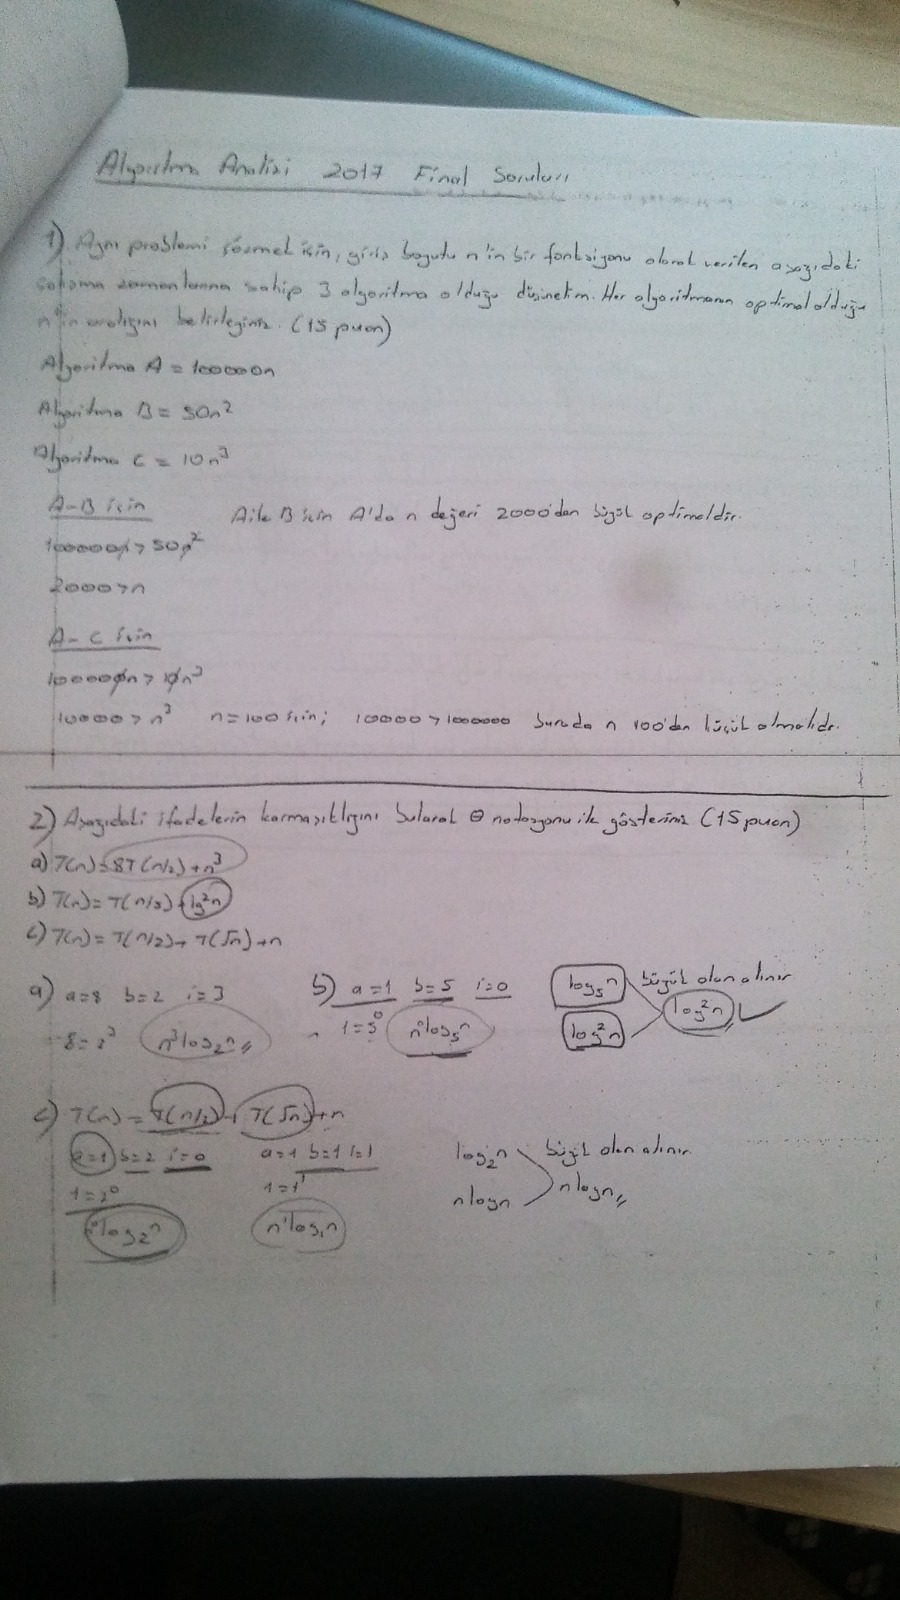 Algoritma Analizi 2017 Final Soruları
1) Aynı problemi çözmek için, giriş boyutu n'in bir fonksiyonu olarak verilen aşağıdaki
çalışma zamanlarına sahip 3 algoritma olduğu düşünelim. Her algoritmanın optimal olduğu
n'in aralığını belirleyiniz. (15 puan)
Algoritma A = 100000n
Algoritma B = 50n²
Algoritma C = 10n³
A-B için
A ile B için A'da n değeri 2000'den büyük optimaldir.
100000n > 50n²
2000 > n
A-C için
100000n > 10n³
10000 > n³ n=100 için; 10000 > 1000000 burada n 100'den küçük olmalıdır.
2) Aşağıdaki ifadelerin karmaşıklığını bularak Θ notasyonu ile gösteriniz (15 puan)
a) T(n) = 8T(n/2) + n³
b) T(n) = T(n/5) + lg²n
c) T(n) = T(n/2) + T(√n) + n
a) a=8 b=2 i=3
8=2³ n³log₂n //
b) a=1 b=5 i=0
1=5⁰ n⁰log₅n
log₅n büyük olan alınır
log²n log²n // ✓
c) T(n) = T(n/2) + T(√n) + n
a=1 b=2 i=0 a=1 b=1 i=1
1=2⁰ 1=1¹
n⁰log₂n n¹log₁n
log₂n büyük olan alınır
nlogn nlogn //